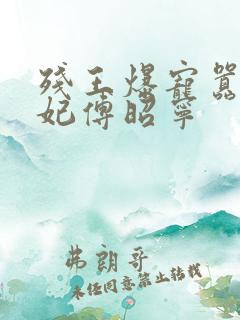 残王爆宠嚣
妃傅昭宁
弗朗哥
未经同意禁止转载